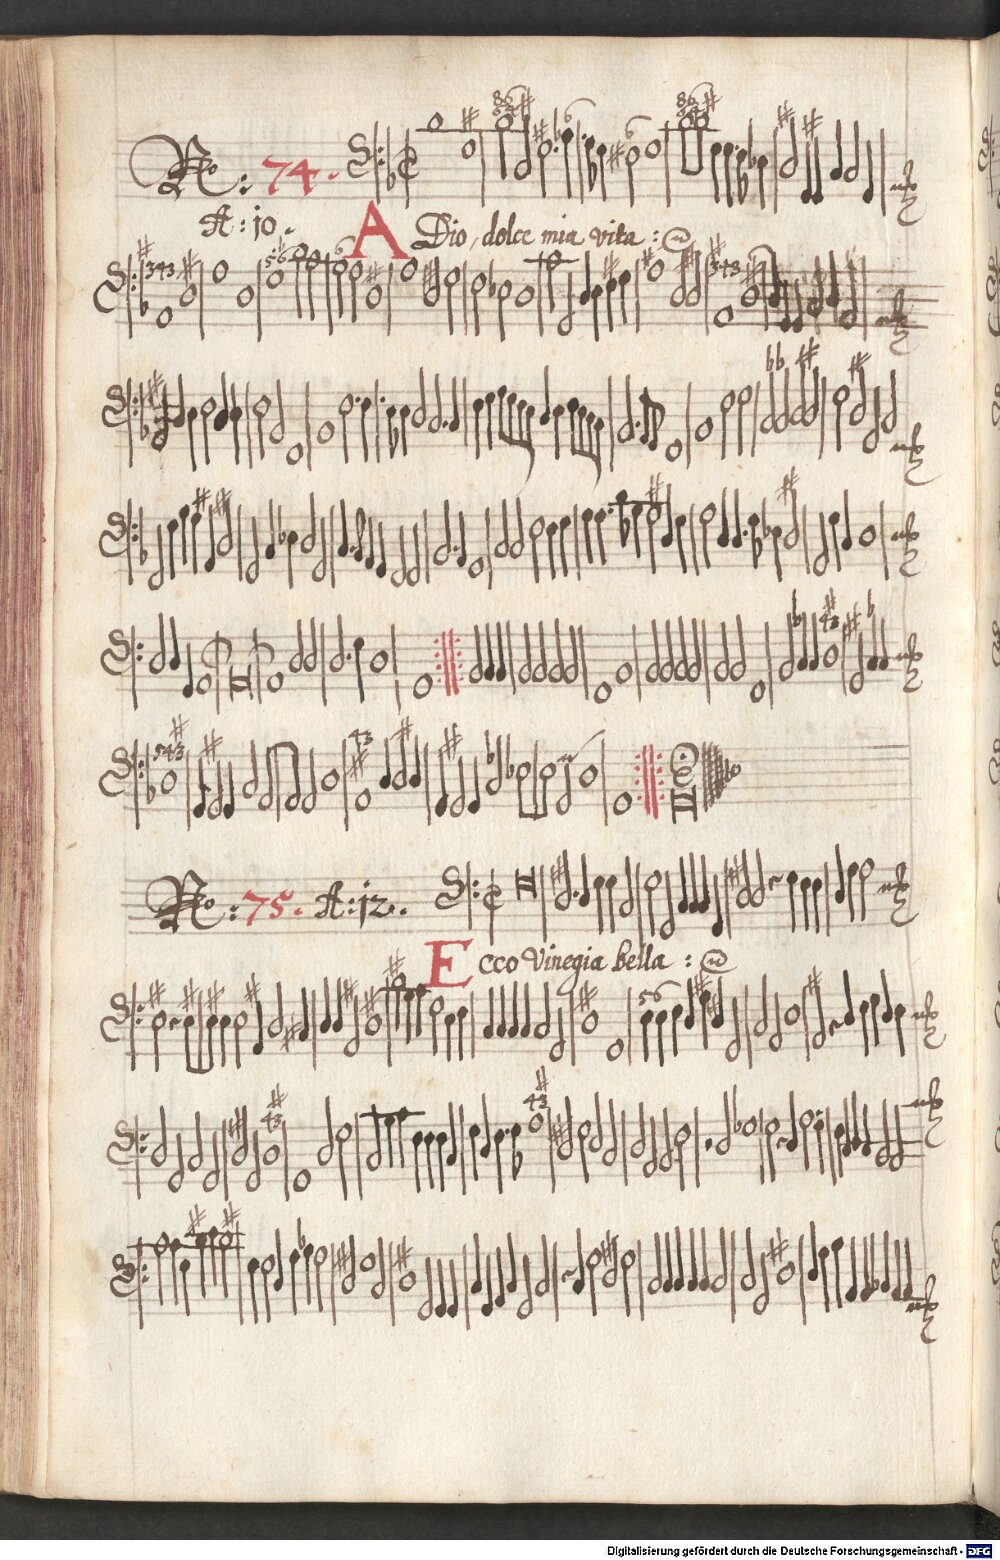 No: 74.
A: 10.
ADio, dolce mia vita:
No: 75. A: 12.
Ecco Vinegia bella:
Digitalisierung gefördert durch die Deutsche Forschungsgemeinschaft - DFG